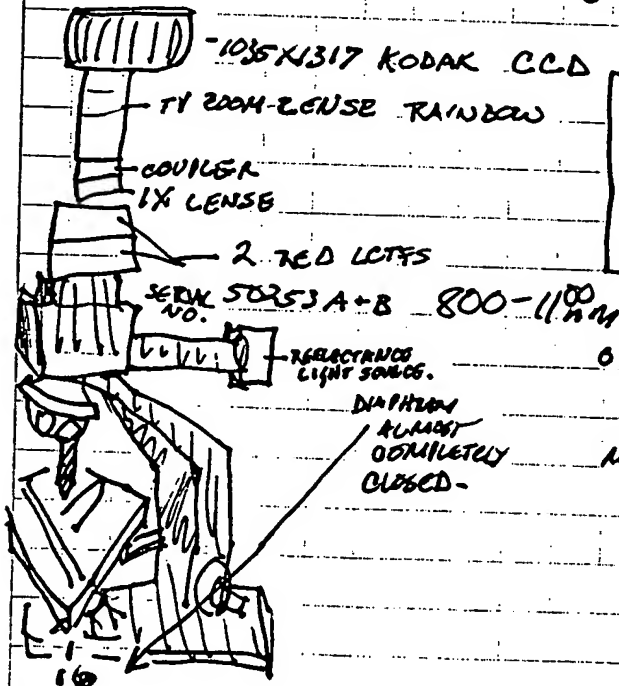 -1035X1317 KODAK CCD
TV ZOOM-LENSE RAINBOW
COUPLER
1X LENSE
2 RED LCTFS
SERIAL NO. 50253 A+B 800-1100 nM
REFLECTANCE
LIGHT SOURCE.
DIAPHRAM
ALMOST
COMPLETELY
CLOSED-